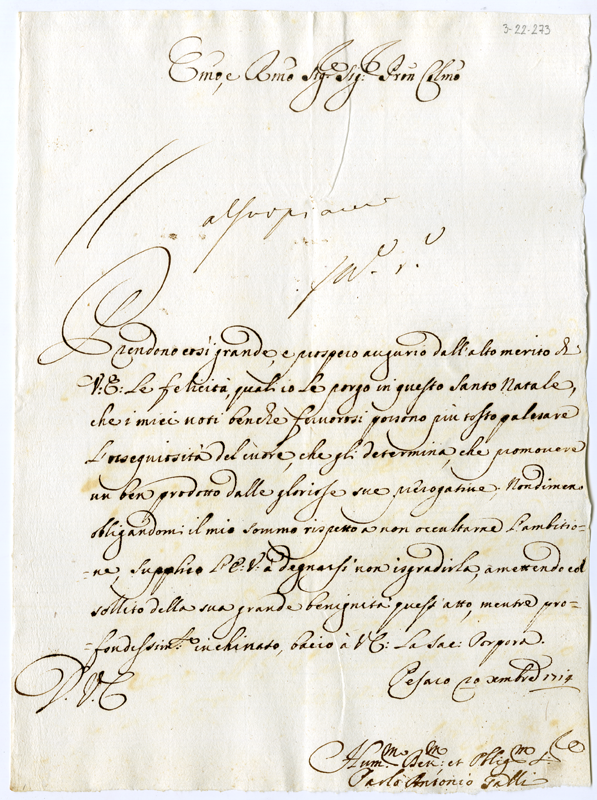 3-22-273
Emo, e Rmo Sigr Sig: Pron Colmo
Prendono così grande, e prospero augurio dall'alto merito di
V: E: Le felicità, quali io Le porgo in questo Santo Natale,
che i miei voti benche fervorosi possono più tosto palesare
L'ossequiosità del cuore, che gli determina, che promovere
un ben prodotto dalle gloriose sue prerogative. Nondimeno
obligandomi il mio sommo rispetto a non occultarne L'ambitio=
=ne, supplico L'E: V: a degnarsi non isgradirla, amettendo col
sollito della sua grande benignità quest'atto, mentre pro=
=fondissimte inchinato, bacio à V E: La Sac: Porpora.
D. V. E Pesaro 20 Xmbre 1714
Humo Devmo: et Obligmo Se
Carlo Antonio Galli